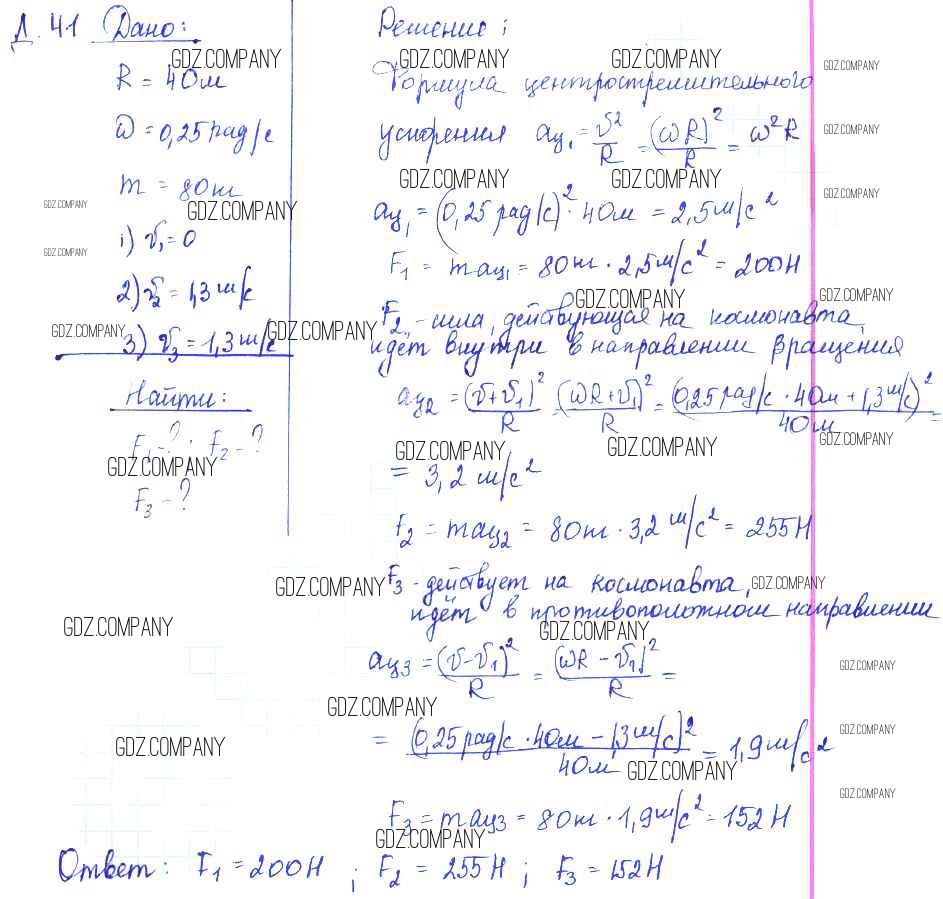 Д. 41 Дано:
R = 40м
ω = 0,25 рад/с
m = 80кг
1) v₁ = 0
2) v₂ = 1,3 м/с
3) v₃ = 1,3 м/с
Найти:
F₁ - ? ; F₂ - ?
F₃ - ?
Решение:
Формула центростремительного
ускорения aц₁ = v²/R = (ωR)²/R = ω²R
aц₁ = (0,25 рад/с)² · 40м = 2,5 м/с²
F₁ = maц₁ = 80кг · 2,5 м/с² = 200Н
F₂ - сила, действующая на космонавта,
идет внутри в направлении вращения
aц₂ = (v+v₁)²/R = (ωR+v₁)²/R = (0,25 рад/с · 40м + 1,3 м/с)²/40м =
= 3,2 м/с²
F₂ = maц₂ = 80кг · 3,2 м/с² = 255Н
F₃ - действует на космонавта,
идёт в противоположном направлении
aц₃ = (v-v₁)²/R = (ωR - v₁)²/R =
= (0,25 рад/с · 40м - 1,3 м/с)²/40м = 1,9 м/с²
F₃ = maц₃ = 80кг · 1,9 м/с² = 152Н
Ответ: F₁ = 200Н ; F₂ = 255Н ; F₃ = 152Н
GDZ.COMPANY